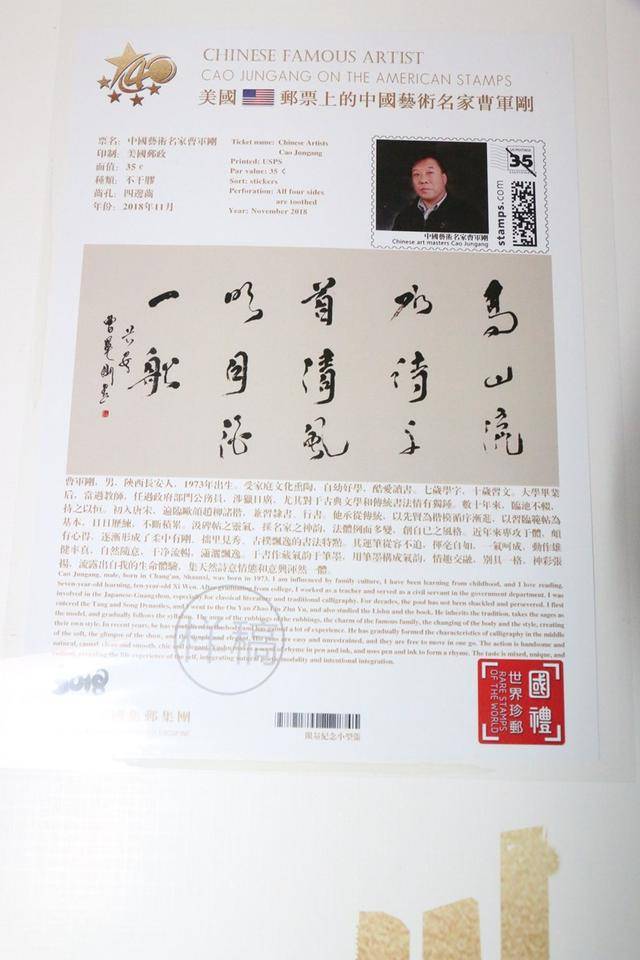 40
CHINESE FAMOUS ARTIST
CAO JUNGANG ON THE AMERICAN STAMPS
美國 郵票上的中國藝術名家曹軍剛
票名：中國藝術名家曹軍剛
印制：美國郵政
面值：35 ¢
種類：不干膠
齒孔：四邊齒
年份：2018年11月
Ticket name: Chinese Artists
Cao Jungang
Printed: USPS
Par value: 35 ¢
Sort: stickers
Perforation: All four sides
are toothed
Year: November 2018
US POSTAGE
35
stamps.com
中國藝術名家曹軍剛
Chinese art masters Cao Jungang
高山流
水诗千
首清風
明月酒
一船
曹軍剛，男，陝西長安人，1973年出生。受家庭文化熏陶，自幼好學，酷愛讀書。七歲學字，十歲習文。大學畢業
后，當過教師，任過政府部門公務員，涉獵日廣，尤其對于古典文學和傳統書法情有獨鍾。數十年來，臨池不輟，
持之以恒。初入唐宋，遍臨歐顔趙柳諸楷，兼習隸書、行書。他承從傳統，以先賢為楷模循序漸進，以習臨範帖為
基本，日日歷練，不斷積累。汲碑帖之靈氣，採名家之神韵，法體例而多變，創自己之風格。近年來專攻于體，頗
有心得，逐漸形成了柔中有剛，拙里見秀，古樸飄逸的書法特點。其運筆從容不迫，揮毫自如，一氣呵成，動作雄
健率真，自然隨意，干净流暢，瀟灑飄逸。于書作藏氣韵于筆墨，用筆墨構成氣韵，情趣交融，别具一格，神彩張
揚，流露出自我的生命體驗，集天然詩意情態和意興渾然一體。
Cao Jungang, male, born in Chang'an, Shaanxi, was born in 1973. I am influenced by family culture, I have been learning from childhood, and I love reading.
Seven-year-old learning, ten-year-old Xi Wen. After graduating from college, I worked as a teacher and served as a civil servant in the government department. I was
involved in the Japanese-Guangzhou, especially for classical literature and traditional calligraphy. For decades, the pool has not been shackled and persevered. I first
entered the Tang and Song Dynasties, and went to the Ou Yan Zhao Liu Zhu Yu, and also studied the Lishu and the book. He inherits the tradition, takes the sages as
the model, and gradually follows the rubbings, the charm of the famous family, the changing of the body and the style, creating
their own style. In recent years, he has a lot of experience. He has gradually formed the characteristics of calligraphy in the middle
of the soft, the glimpse of the show, and easy and unrestrained, and they are free to move in one go. The action is handsome and
natural, casual, clean and smooth, chic rhyme in pen and ink, and uses pen and ink to form a rhyme. The taste is mixed, unique, and
revealing the life experience of the self, integrating modality and intentional integration.
样稿
2018
集郵集團
限量紀念小型張
國禮
世界珍郵
RARE STAMPS
OF THE WORLD